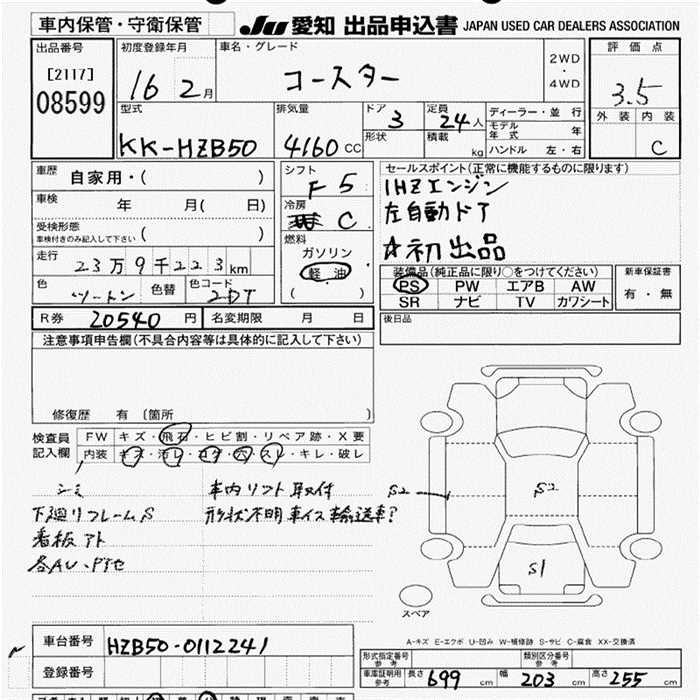 車内保管・守衛保管
JU 愛知 出品申込書 JAPAN USED CAR DEALERS ASSOCIATION
出品番号
[2117]
08599
初度登録年月
16 2月
車名・グレード
コースター
2WD
・
4WD
評価点
3.5
外装 内装
C
型式
KK-HZB50
排気量
4160 CC
ドア
3
形状
定員
24人
積載
kg
ディーラー・並行
モデル年式 年
ハンドル 左・右
車歴
自家用・( )
車検 年 月( 日)
受検形態
車検付きのみ記入して下さい ( )
走行
23万9千223km
色
ツートン
色替
色コード
2DT
シフト
F5
冷房
C
燃料
ガソリン
軽油
( )
セールスポイント(正常に機能するものに限ります)
1HZエンジン
左自動ドア
☆初出品
装備品(純正品に限り○をつけてください)
PS PW エアB AW
SR ナビ TV カワシート
新車保証書
有・無
R券 20540 円
名変期限 月 日
後日品
注意事項申告欄(不具合内容等は具体的に記入して下さい)
修復歴 有 [箇所 ]
検査員記入欄
FW キズ・飛石・ヒビ割・リペア跡・X要
内装 キズ・汚レ・コゲ・穴・スレ・キレ・破レ
シミ
下廻リフレームS
看板アト
各AU、
車内リフト取付
形状不明車イス輸送車?
S2
S2
S1
スペア
A-キズ E-エクボ U-凹み W-補修跡 S-サビ C-腐食 XX-交換済
車台番号
HZB50-0112241
登録番号
形式指定番号
参考
類別区分番号
参考
車庫証明用
参考
長さ 699 cm
幅 203 cm
高さ 255 cm